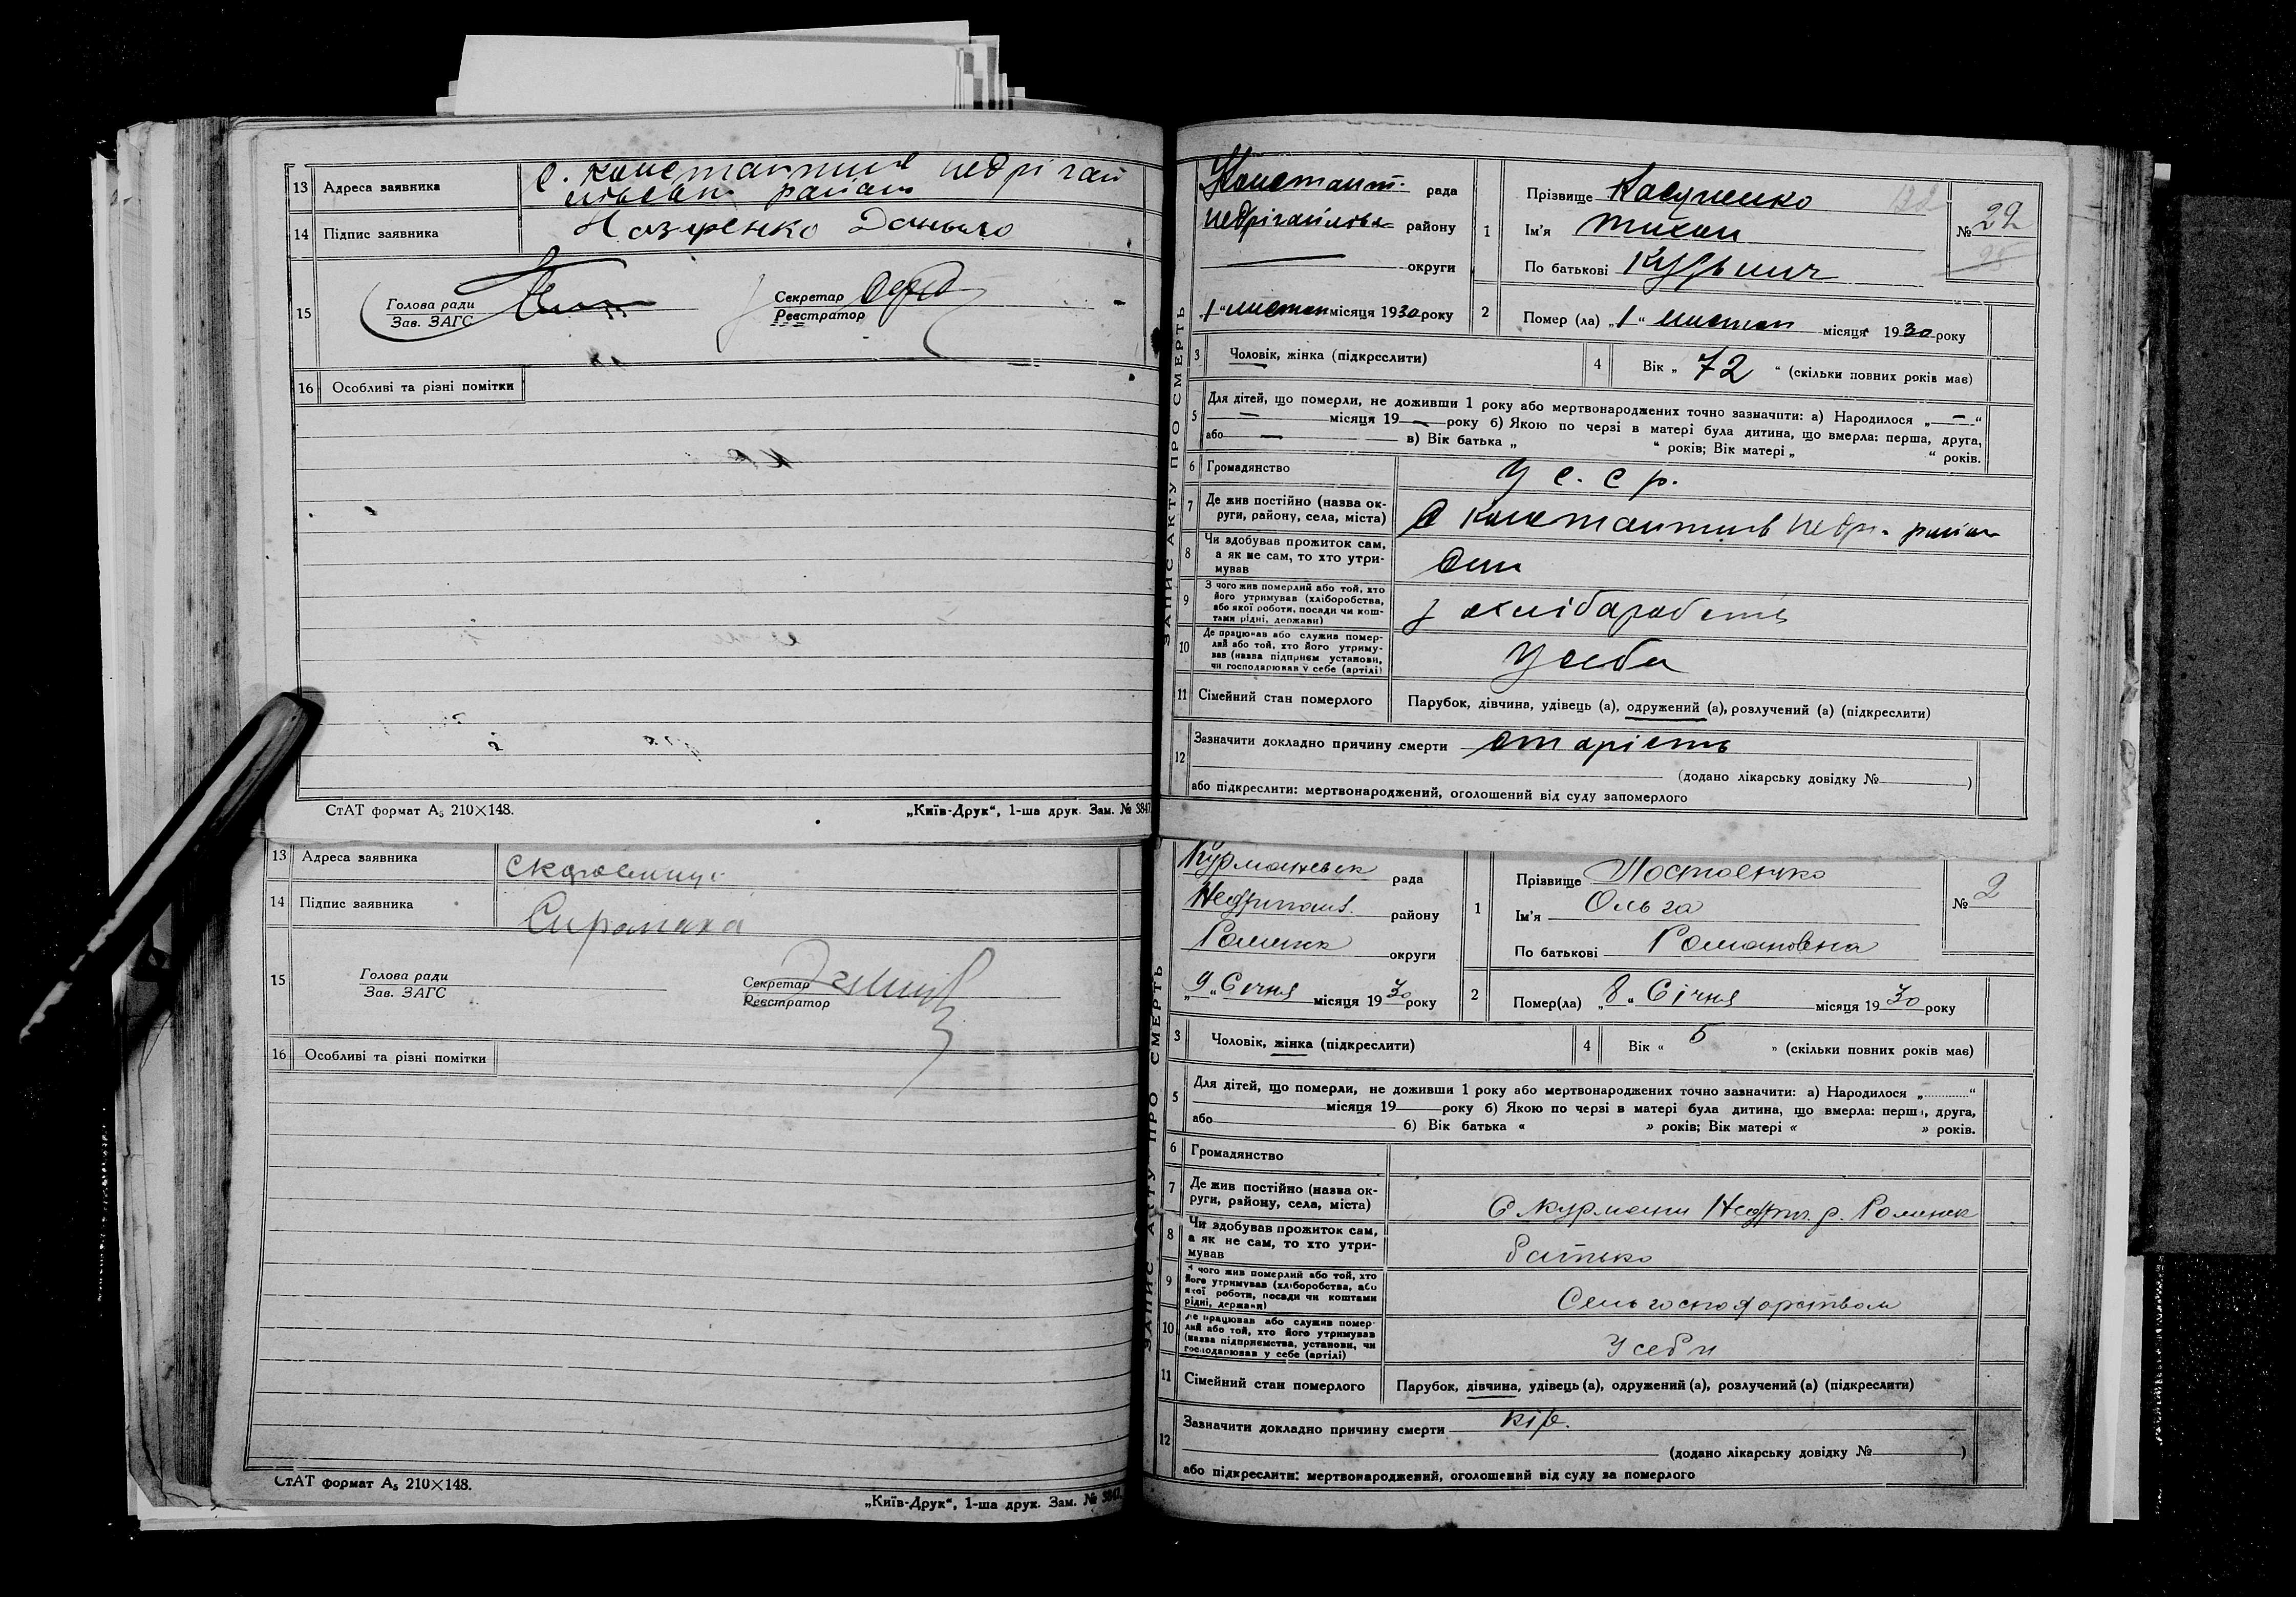 13 Адреса заявника
с. Константинів Недрігай
лівськ. район
14 Підпис заявника
Назаренко Данило
15 Голова ради
Зав. ЗАГС
Секретар
Реєстратор
16 Особливі та різні помітки
СтАТ формат А₅ 210×148.
„Київ-Друк“, 1-ша друк. Зам. № 3847
ЗАПИС АКТУ ПРО СМЕРТЬ
Констант. рада
Недрігайлов. району
округи
„1“ листоп місяця 1930 року
1 Прізвище
Ім'я Тихон
По батькові
№ 22
2 Помер (ла) „1“ листоп місяця 1930 року
3 Чоловік, жінка (підкреслити)
4 Вік „72“ (скільки повних років має)
5 Для дітей, що померли, не доживши 1 року або мертвонароджених точно зазначити: а) Народилося „—“
— місяця 19— року б) Якою по черзі в матері була дитина, що вмерла: перша, друга,
або — в) Вік батька „ “ років; Вік матері „ “ років.
6 Громадянство
У с. с р.
7 Де жив постійно (назва ок-
руги, району, села, міста)
с Константинів Недри. район
8 Чи здобував прожиток сам,
а як не сам, то хто утри-
мував
9 З чого жив померлий або той, хто
його утримував (хліборобства,
або якої роботи, посади чи кош-
тами рідні, держави)
з хліборобств
10 Де працював або служив помер-
лий або той, хто його утриму-
вав (назва підприєм установи,
чи господарював у себе (артілі)
У себе
11 Сімейний стан померлого
Парубок, дівчина, удівець (а), одружений (а), розлучений (а) (підкреслити)
12 Зазначити докладно причину смерти старість
(додано лікарську довідку № )
або підкреслити: мертвонароджений, оголошений від суду запомерлого
13 Адреса заявника
14 Підпис заявника
Сиромаха
15 Голова ради
Зав. ЗАГС
Секретар
Реєстратор
16 Особливі та різні помітки
СтАТ формат А₅ 210×148.
„Київ-Друк“, 1-ша друк. Зам. № 3847.
ЗАПИС АКТУ ПРО СМЕРТЬ
рада
Недригайл. району
Роменск округи
„9“ Січня місяця 1930 року
1 Прізвище
Ім'я Ольга
По батькові Романовна
№ 2
2 Помер(ла) „8“ Січня місяця 1930 року
3 Чоловік, жінка (підкреслити)
4 Вік « 5 » (скільки повних років має)
5 Для дітей, що померли, не доживши 1 року або мертвонароджених точно зазначити: а) Народилося „ “
місяця 19 року б) Якою по черзі в матері була дитина, що вмерла: перша, друга,
або б) Вік батька « » років; Вік матері « » років.
6 Громадянство
7 Де жив постійно (назва ок-
руги, району, села, міста)
р. Роменск
8 Чи здобував прожиток сам,
а як не сам, то хто утри-
мував
батько
9 З чого жив померлий або той, хто
його утримував (хліборобства, або
якої роботи, посади чи коштами
рідні, держави)
Сельгосподарством
10 Де працював або служив помер-
лий або той, хто його утримував
(назва підприємства, установи, чи
господарював у себе (артілі)
У себи
11 Сімейний стан померлого
Парубок, дівчина, удівець (а), одружений (а), розлучений (а) (підкреслити)
12 Зазначити докладно причину смерти кір.
(додано лікарську довідку № )
або підкреслити: мертвонароджений, оголошений від суду за померлого